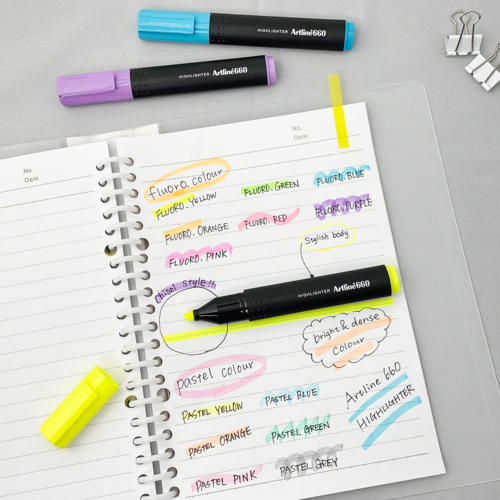 HIGHLIGHTER Artline 660
HIGHLIGHTER Artline 660
No.
Date
No.
Date
fluoro.colour
FLUORO.YELLOW
FLUORO.GREEN
FLUORO.BLUE
FLUORO.ORANGE
FLUORO.RED
FLUORO.PURPLE
FLUORO.PINK
Stylish body
chisel style!!
HIGHLIGHTER Artline 660
bright & dense
colour
pastel colour
PASTEL YELLOW
PASTEL BLUE
PASTEL ORANGE
PASTEL GREEN
PASTEL PINK
PASTEL GREY
Artline 660
HIGHLIGHTER